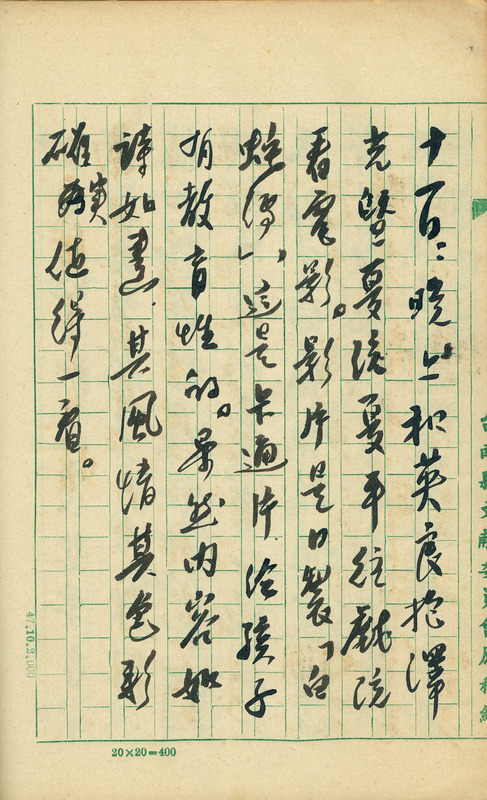 十一日：晚上和英良抱澤
克暨夏統夏平往戲院
看電影。影片是日製「白
蛇傳」，這是卡通片、給孩子
有教育性的。果然內容如
詩如畫、其風情其色彩
確實值得一看。
台南縣文獻委員會原稿紙
47.10.2,000
20×20=400